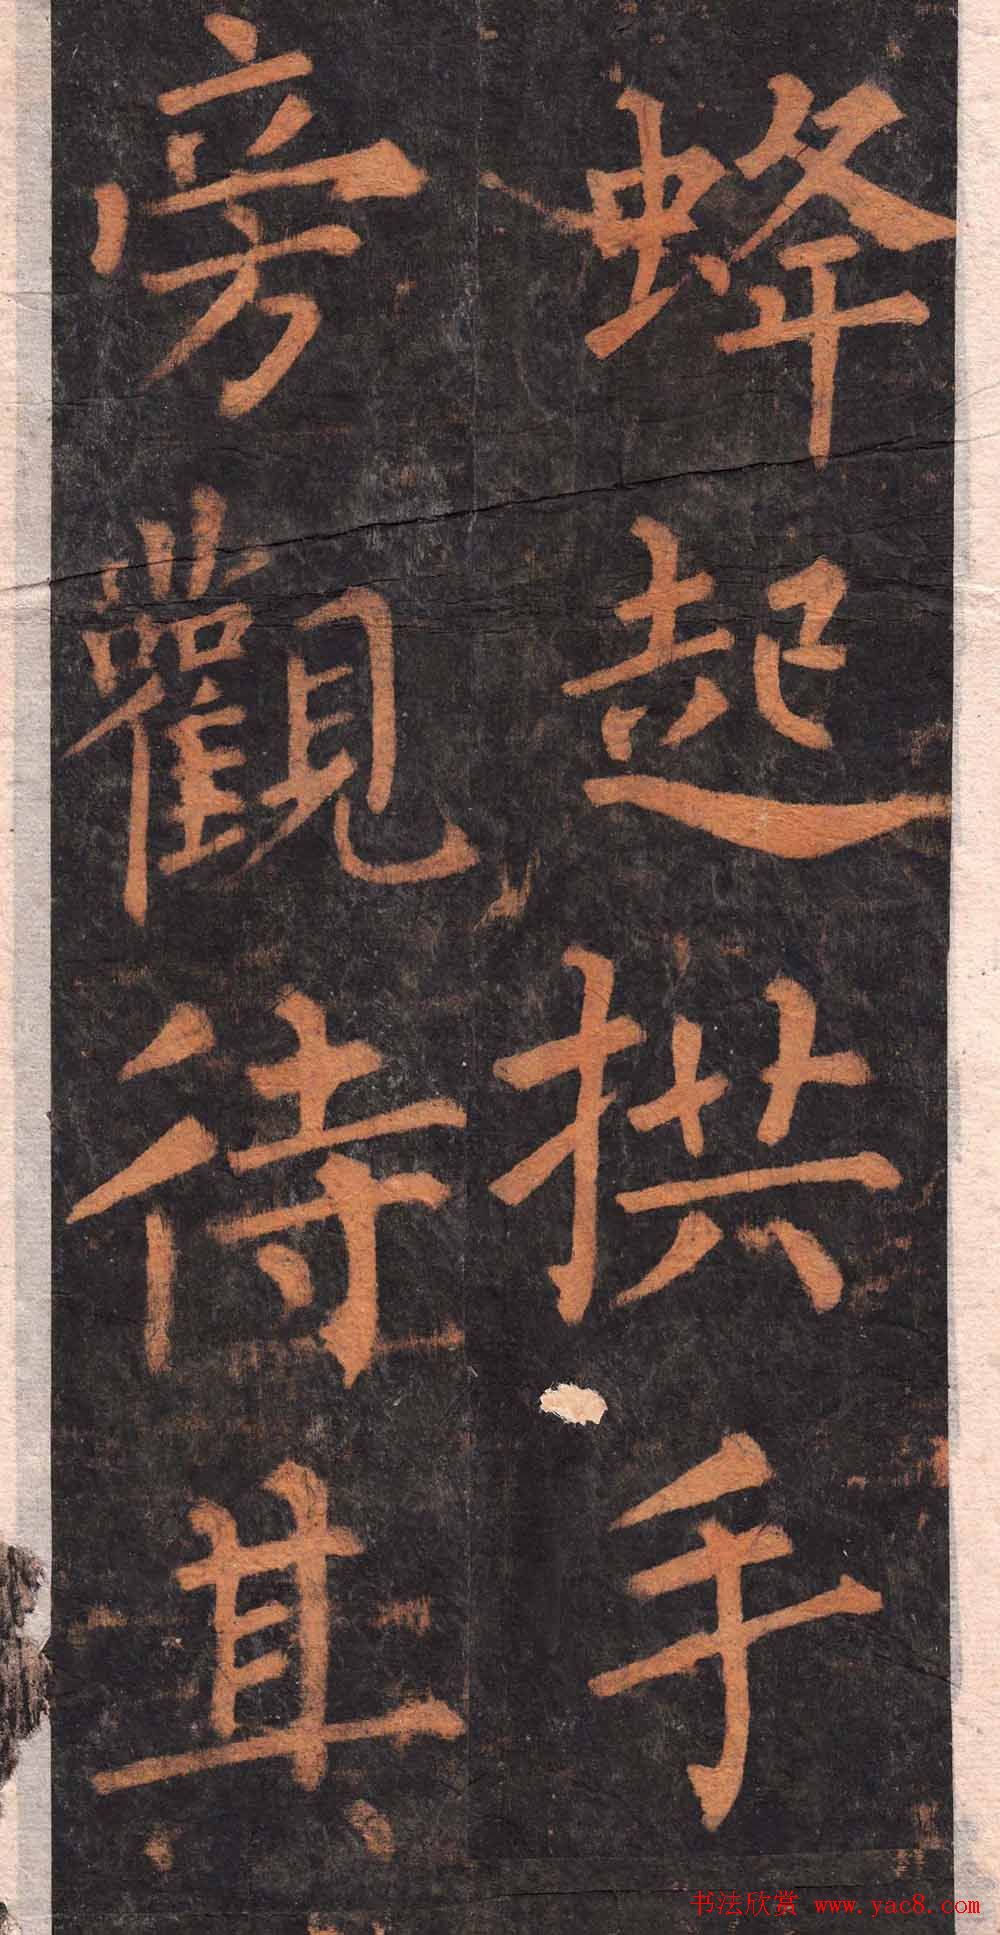 蜂起拱手
旁觀待其
书法欣赏 www.yac8.com